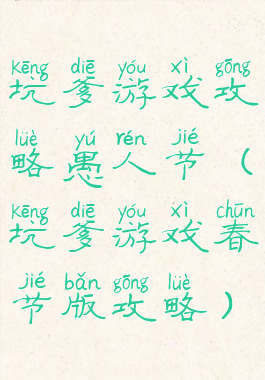 kēng diē yóu xì gōng
坑爹游戏攻
lüè yú rén jié
略愚人节（
kēng diē yóu xì chūn
坑爹游戏春
jié bǎn gōng lüè
节版攻略）